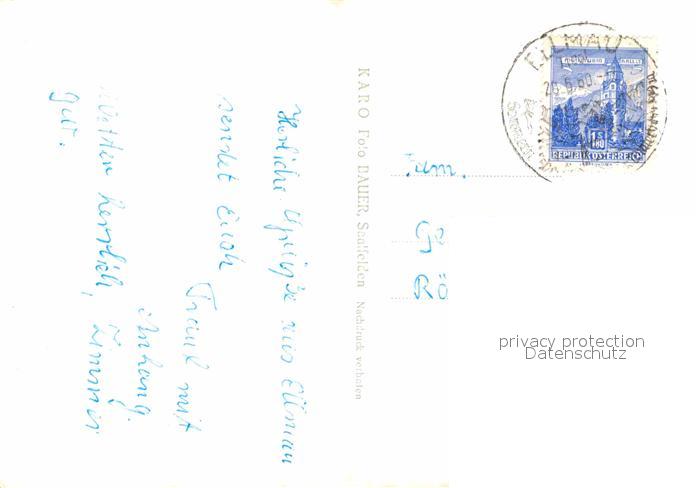 Herzliche Grüße aus Ellmau
sendet Euch
Traudl mit
Anhang.
Wetter herrlich, Zimmer
gut.
KARO Foto BAUER, Saalfelden Nachdruck verboten
Fam.
G
Rö
ELLMAU
REPUBLIK ÖSTERREICH
1.80
privacy protection
Datenschutz